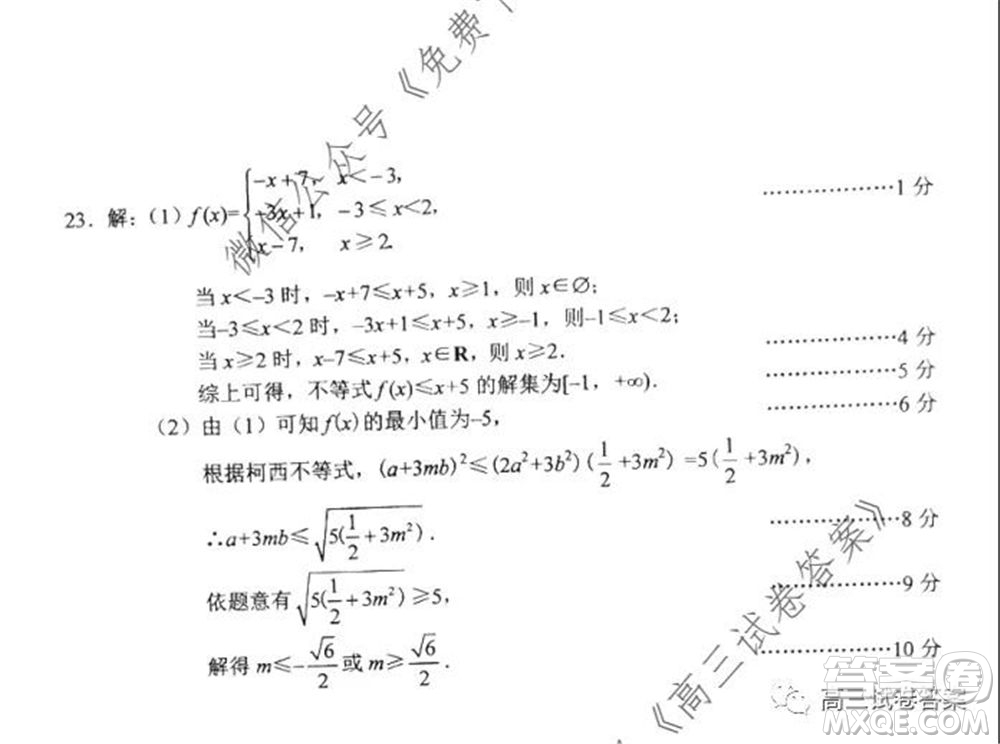 《免费
微信公众号
23．解：（1）f(x)={−x＋7， x＜−3，
−3x＋1，−3≤x＜2，
x−7， x≥2.
………………1 分
当 x＜−3 时，−x+7≤x+5，x≥1，则 x∈∅；
当−3≤x＜2 时，−3x+1≤x+5，x≥−1，则−1≤x＜2；
………………4 分
当 x≥2 时，x−7≤x+5，x∈R，则 x≥2．
………………5 分
综上可得，不等式 f(x)≤x+5 的解集为[−1，+∞)．
………………6 分
（2）由（1）可知 f(x) 的最小值为−5，
根据柯西不等式，(a+3mb)²≤(2a²+3b²)(1/2+3m²)=5(1/2+3m²)，
∴a+3mb≤√(5(1/2+3m²))．
………………8 分
依题意有√(5(1/2+3m²))≥5，
………………9 分
解得 m≤−√6/2 或 m≥√6/2．
………………10 分
《高三试卷答案》
高三试卷答案
答案圈
MXQE.COM